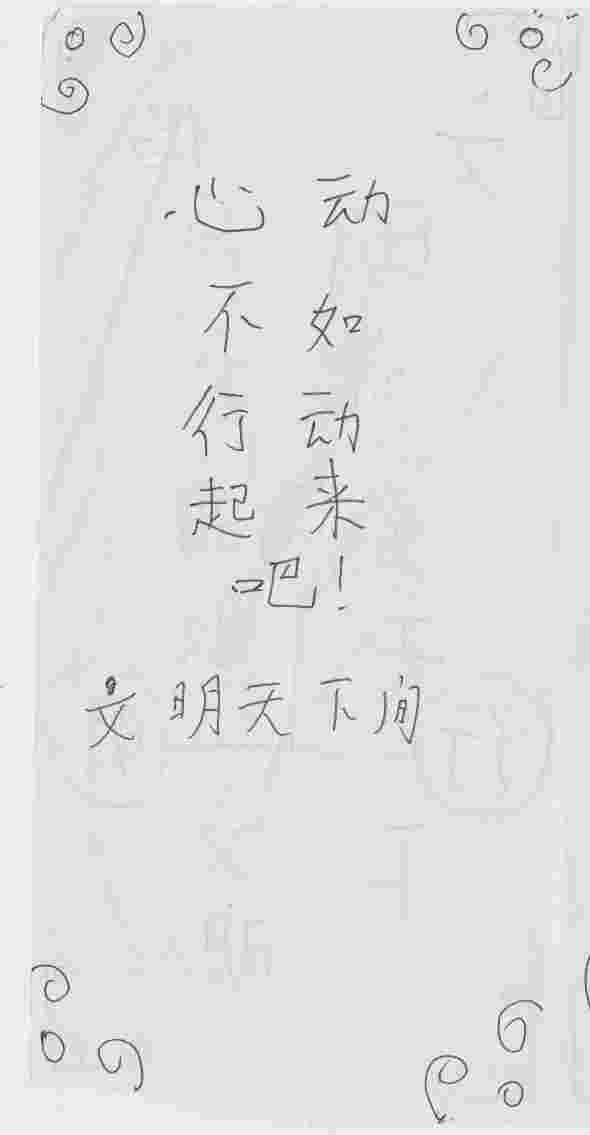 心动
不如
行动
起来
吧!
文明天下间